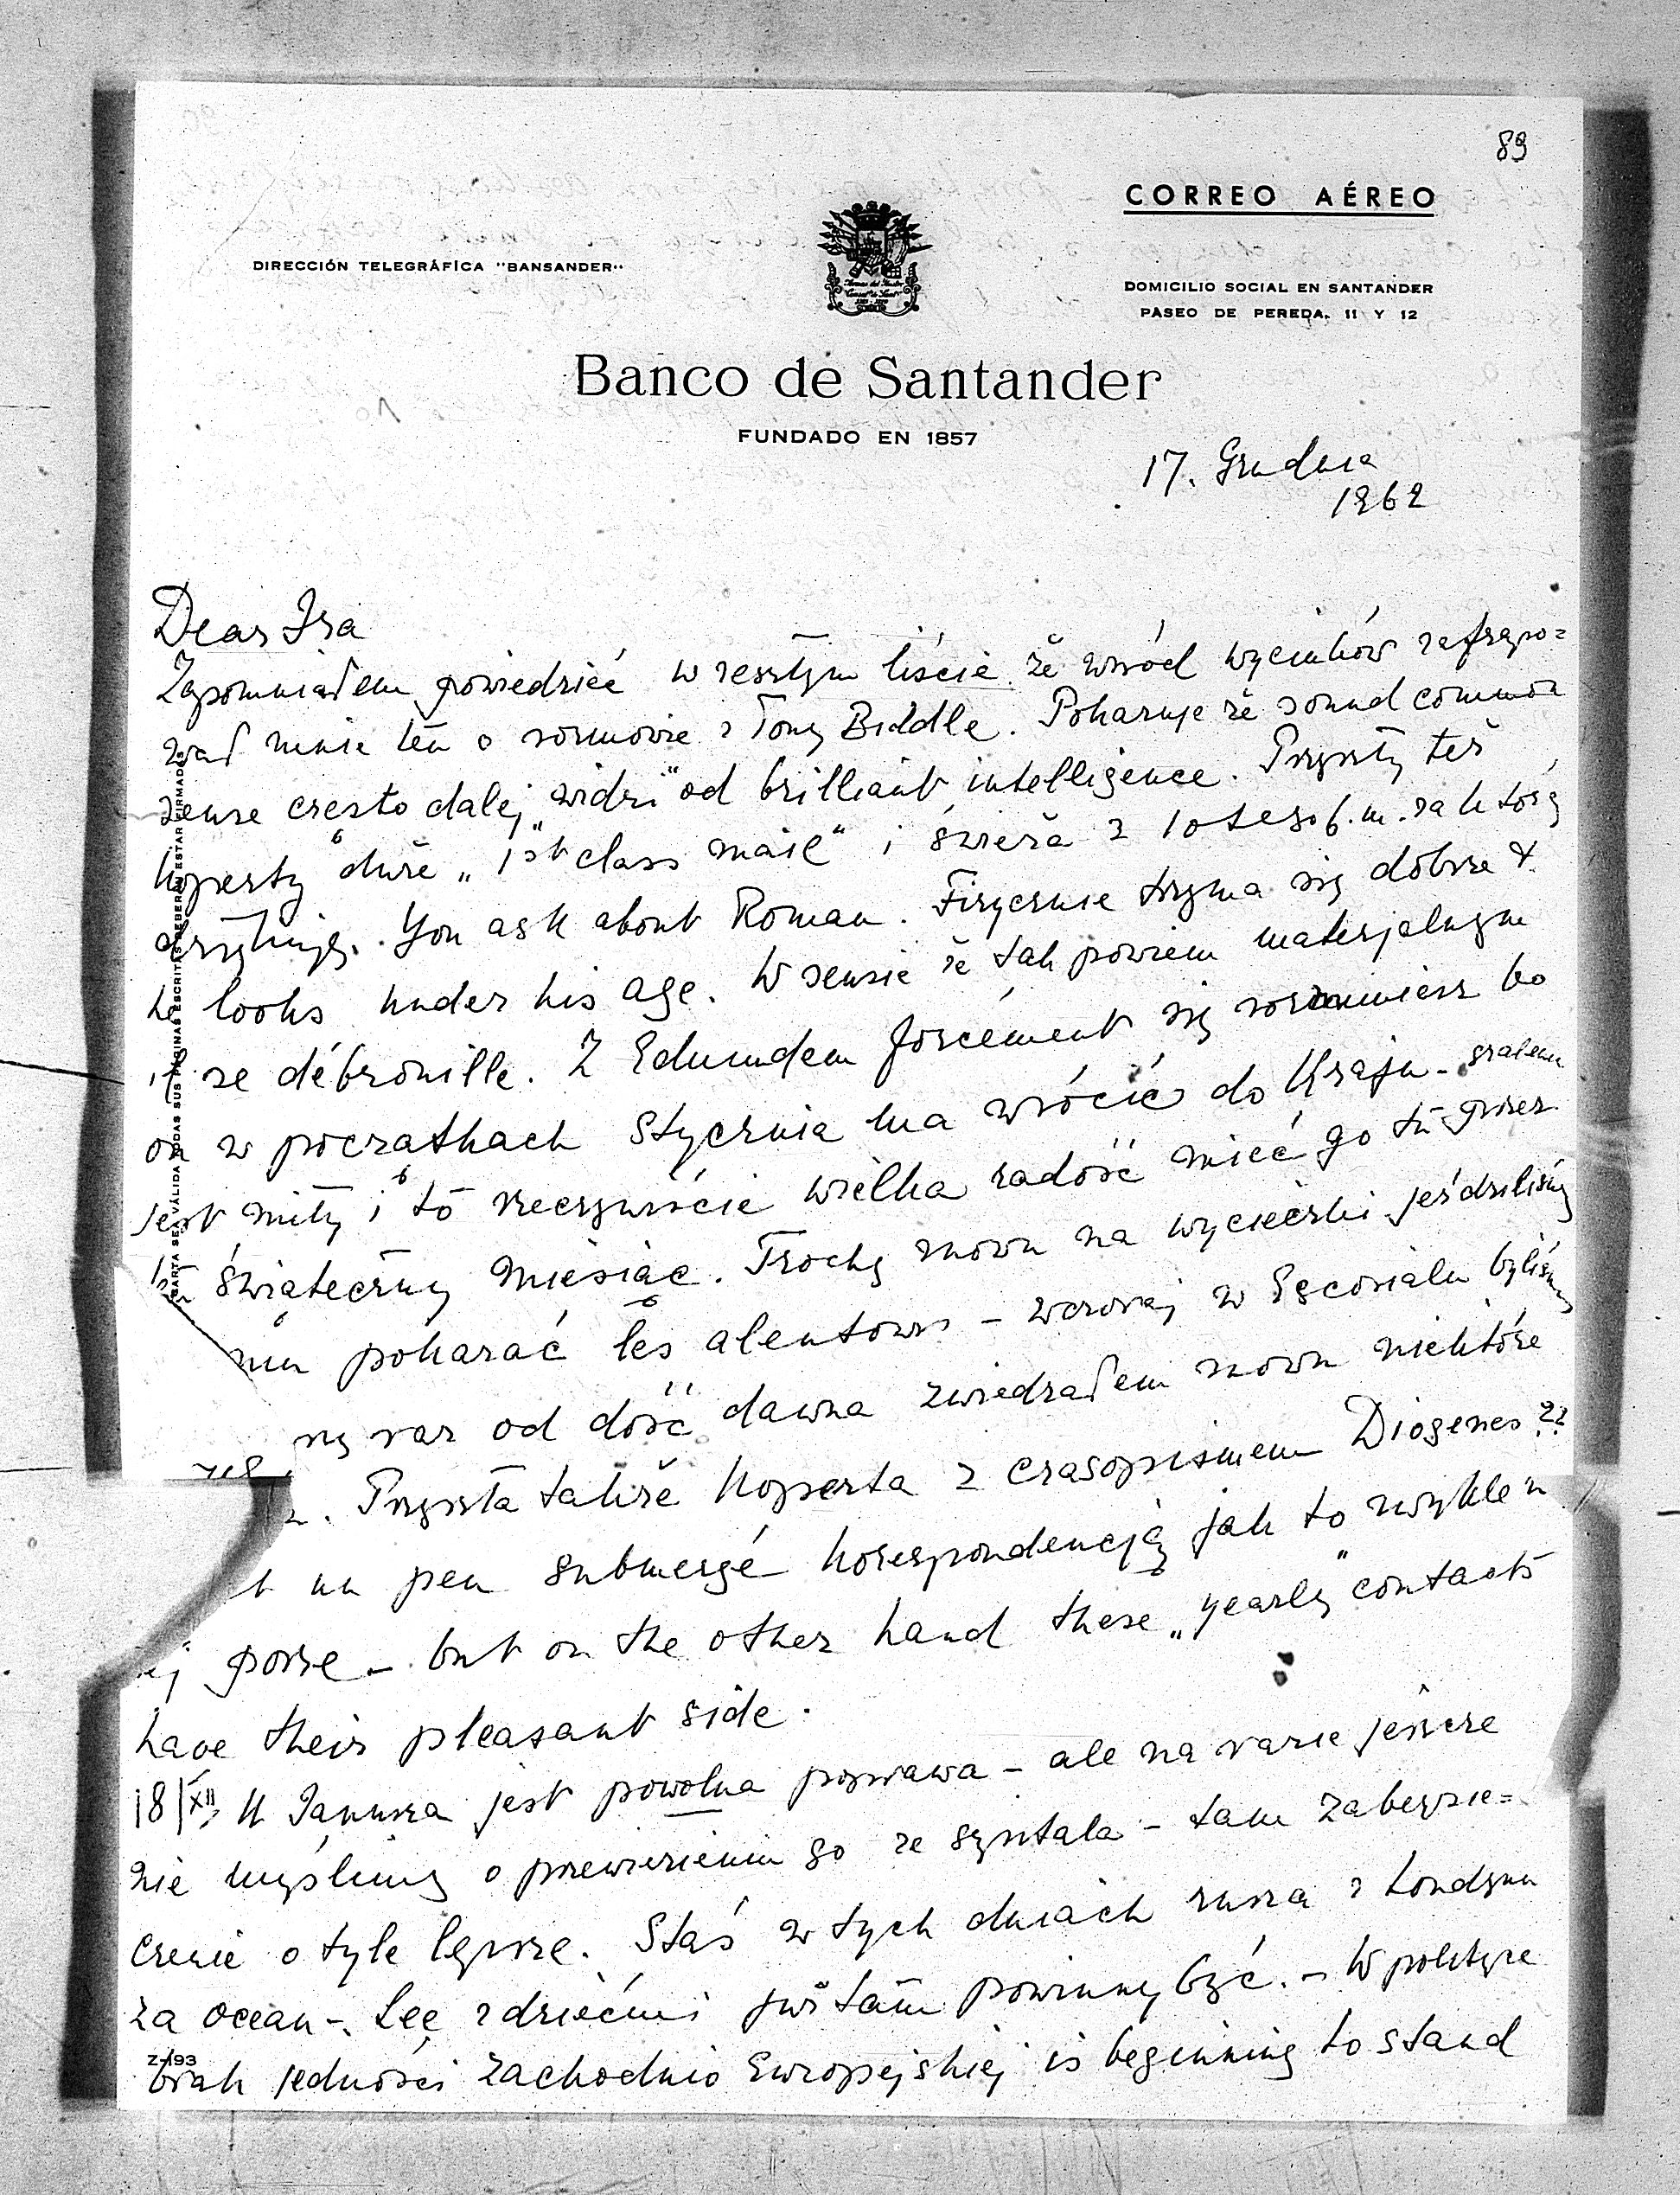 89
CORREO AÉREO
DIRECCIÓN TELEGRÁFICA "BANSANDER"
DOMICILIO SOCIAL EN SANTANDER
PASEO DE PEREDA, 11 Y 12
Banco de Santander
FUNDADO EN 1857
17. Grudnia
1962
Dear Isa
Zapomniałem powiedzieć w zeszłym liście że wśród wycinków zafrapo=
wał mnie ten o rozmowie z Tony Biddle. Pokazuje że sound common
sense często dalej „widzi" od brilliant intelligence. Przyszły też
koperty duże „1st class mail" i świeża z 10tego b.m. za którą
dziękuję. You ask about Roman. Fizycznie trzyma się dobrze &
he looks under his age. W sensie że tak powiem materjalnym
il se débrouille. Z Edmundem forcément się rozumiesz bo
on w początkach Stycznia ma wrócić do Kraju - zatem
jest miły i to rzeczywiście wielka radość mieć go tu przez
świąteczny miesiąc. Trochę znowu na wycieczki jeździliśmy
mu pokazać les alentours - wczoraj w Escorialu byliśmy
raz od dość dawna zwiedzałem znowu niektóre
Przyszła także koperta z czasopismem Diogenes ??
un peu submergé korespondencją jak to zwykle w
ej porze - but on the other hand these „yearly" contacts
have their pleasant side.
18/XII U Janusza jest powolna poprawa - ale na razie jeszcze
nie myślimy o przewiezieniu go ze szpitala - tam zabezpie=
czenie o tyle lepsze. Staś w tych dniach rusza z Londynu
za ocean -. Lee z dziećmi już tam powinny być. - W polityce
brak jedności zachodnio Europejskiej is beginning to stand
Z-193
CARTA SEA VÁLIDA TODAS SUS PÁGINAS ESCRITAS DEBERÁN ESTAR FIRMADAS